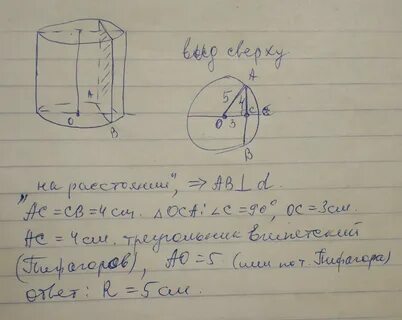 вид сверху
A
5 4
O 3 C
B
A
O
B
"на расстоянии", ⇒ AB⊥d.
AC = CB = 4 см. △OCA: ∠C = 90°, OC = 3 см.
AC = 4 см. треугольник Египетский
(Пифагоров), AO = 5 (или по т. Пифагора)
ответ: R = 5 см.